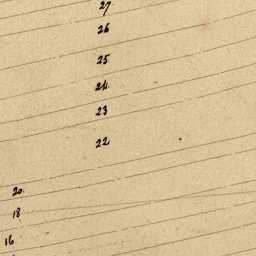 27
26
25
24
23
22
20
18
16